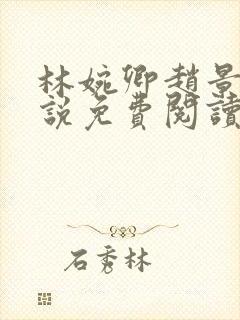 林婉卿趙景
說免費閱讀
石秀林